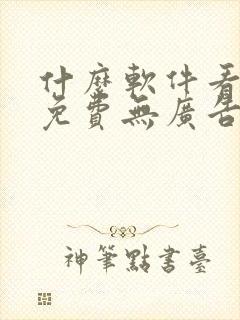 什麼軟件看
免費無廣告
神筆點書臺